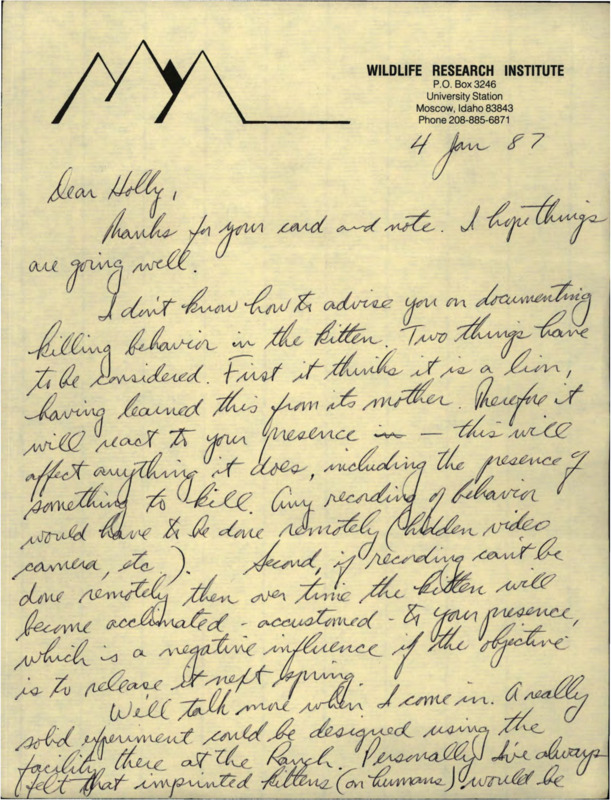 WILDLIFE RESEARCH INSTITUTE
P.O. Box 3246
University Station
Moscow, Idaho 83843
Phone 208-885-6871
4 Jan 87
Dear Holly,
Thanks for your card and note. I hope things
are going well.
I don't know how to advise you on documenting
killing behavior in the kitten. Two things have
to be considered. First it thinks it is a lion,
having learned this from its mother. Therefore it
will react to your presence in — this will
affect anything it does, including the presence of
something to kill. Any recording of behavior
would have to be done remotely (hidden video
camera, etc.). Second, if recording can't be
done remotely then over time the kitten will
become acclimated - accustomed - to your presence,
which is a negative influence if the objective
is to release it next spring.
We'll talk more when I come in. A really
solid experiment could be designed using the
facility there at the Ranch. Personally I've always
felt that imprinted kittens (on humans) would be